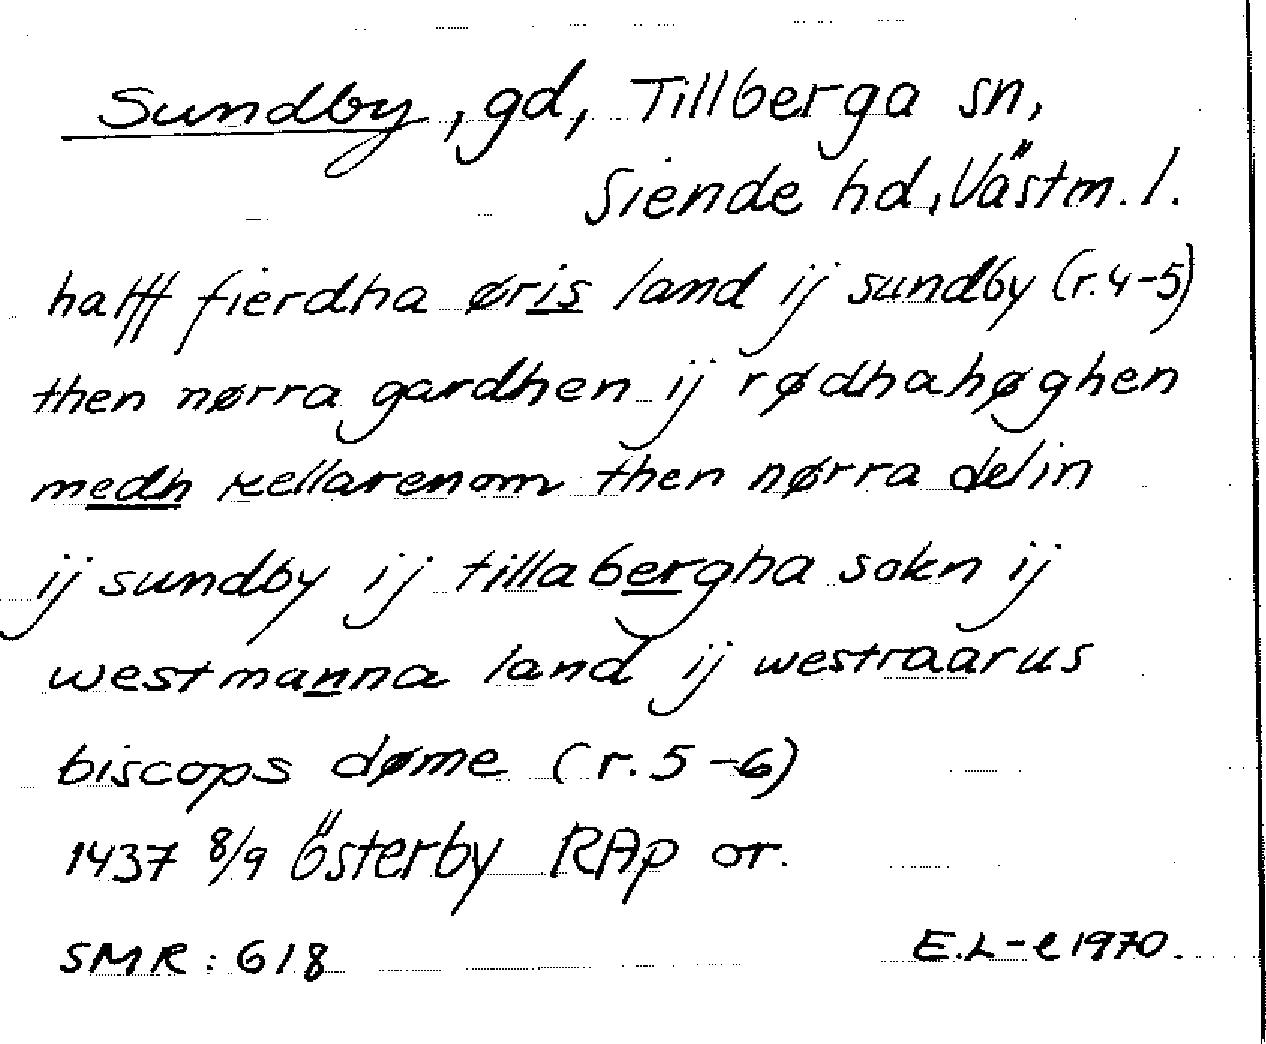 Sundby, gd, Tillberga sn,
Siende hd, Västm. l.
halfff fierdha øris land ij sundby (r. 4-5)
then nørra gardhen ij rødhahøghen
medh kellarenom then nørra delin
ij sundby ij tillabergha sokn ij
westmanna land ij westraarus
biscops døme (r. 5-6)
1437 8/9 Österby RAp or.
SMR: 618 E.L-e 1970.